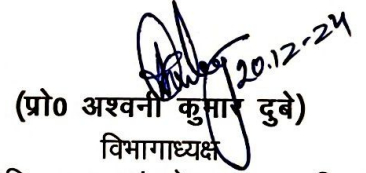 20.12-24
(प्रो0 अश्वनी कुमार दुबे)
विभागाध्यक्ष